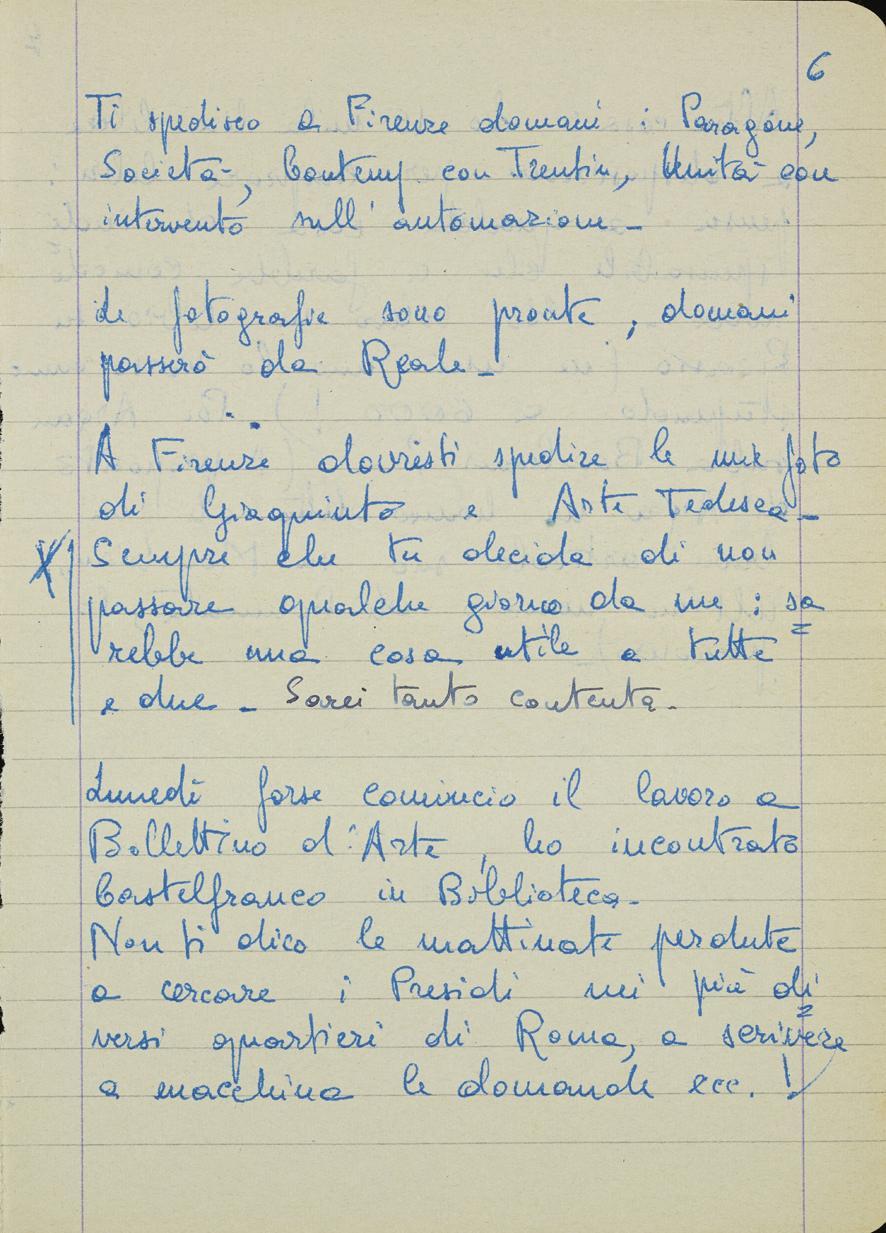 6
Ti spedisco a Firenze domani i Paragone,
Società, Contemp con Trentin, Unità con
intervento sull'automazione -
Le fotografie sono pronte, domani
passerò da Reale -
A Firenze dovresti spedire le mie foto
di Giaquinto e Arte Tedesca -
X Sempre che tu decida di non
passare qualche giorno da me : sa
rebbe una cosa utile a tutte
e due - Sarei tanto contenta -
Lunedì forse comincio il lavoro a
Bollettino d'Arte, ho incontrato
Castelfranco in Biblioteca -
Non ti dico le mattinate perdute
a cercare i Presidi nei più di
versi quartieri di Roma, a scrivere
a macchina le domande ecc. !